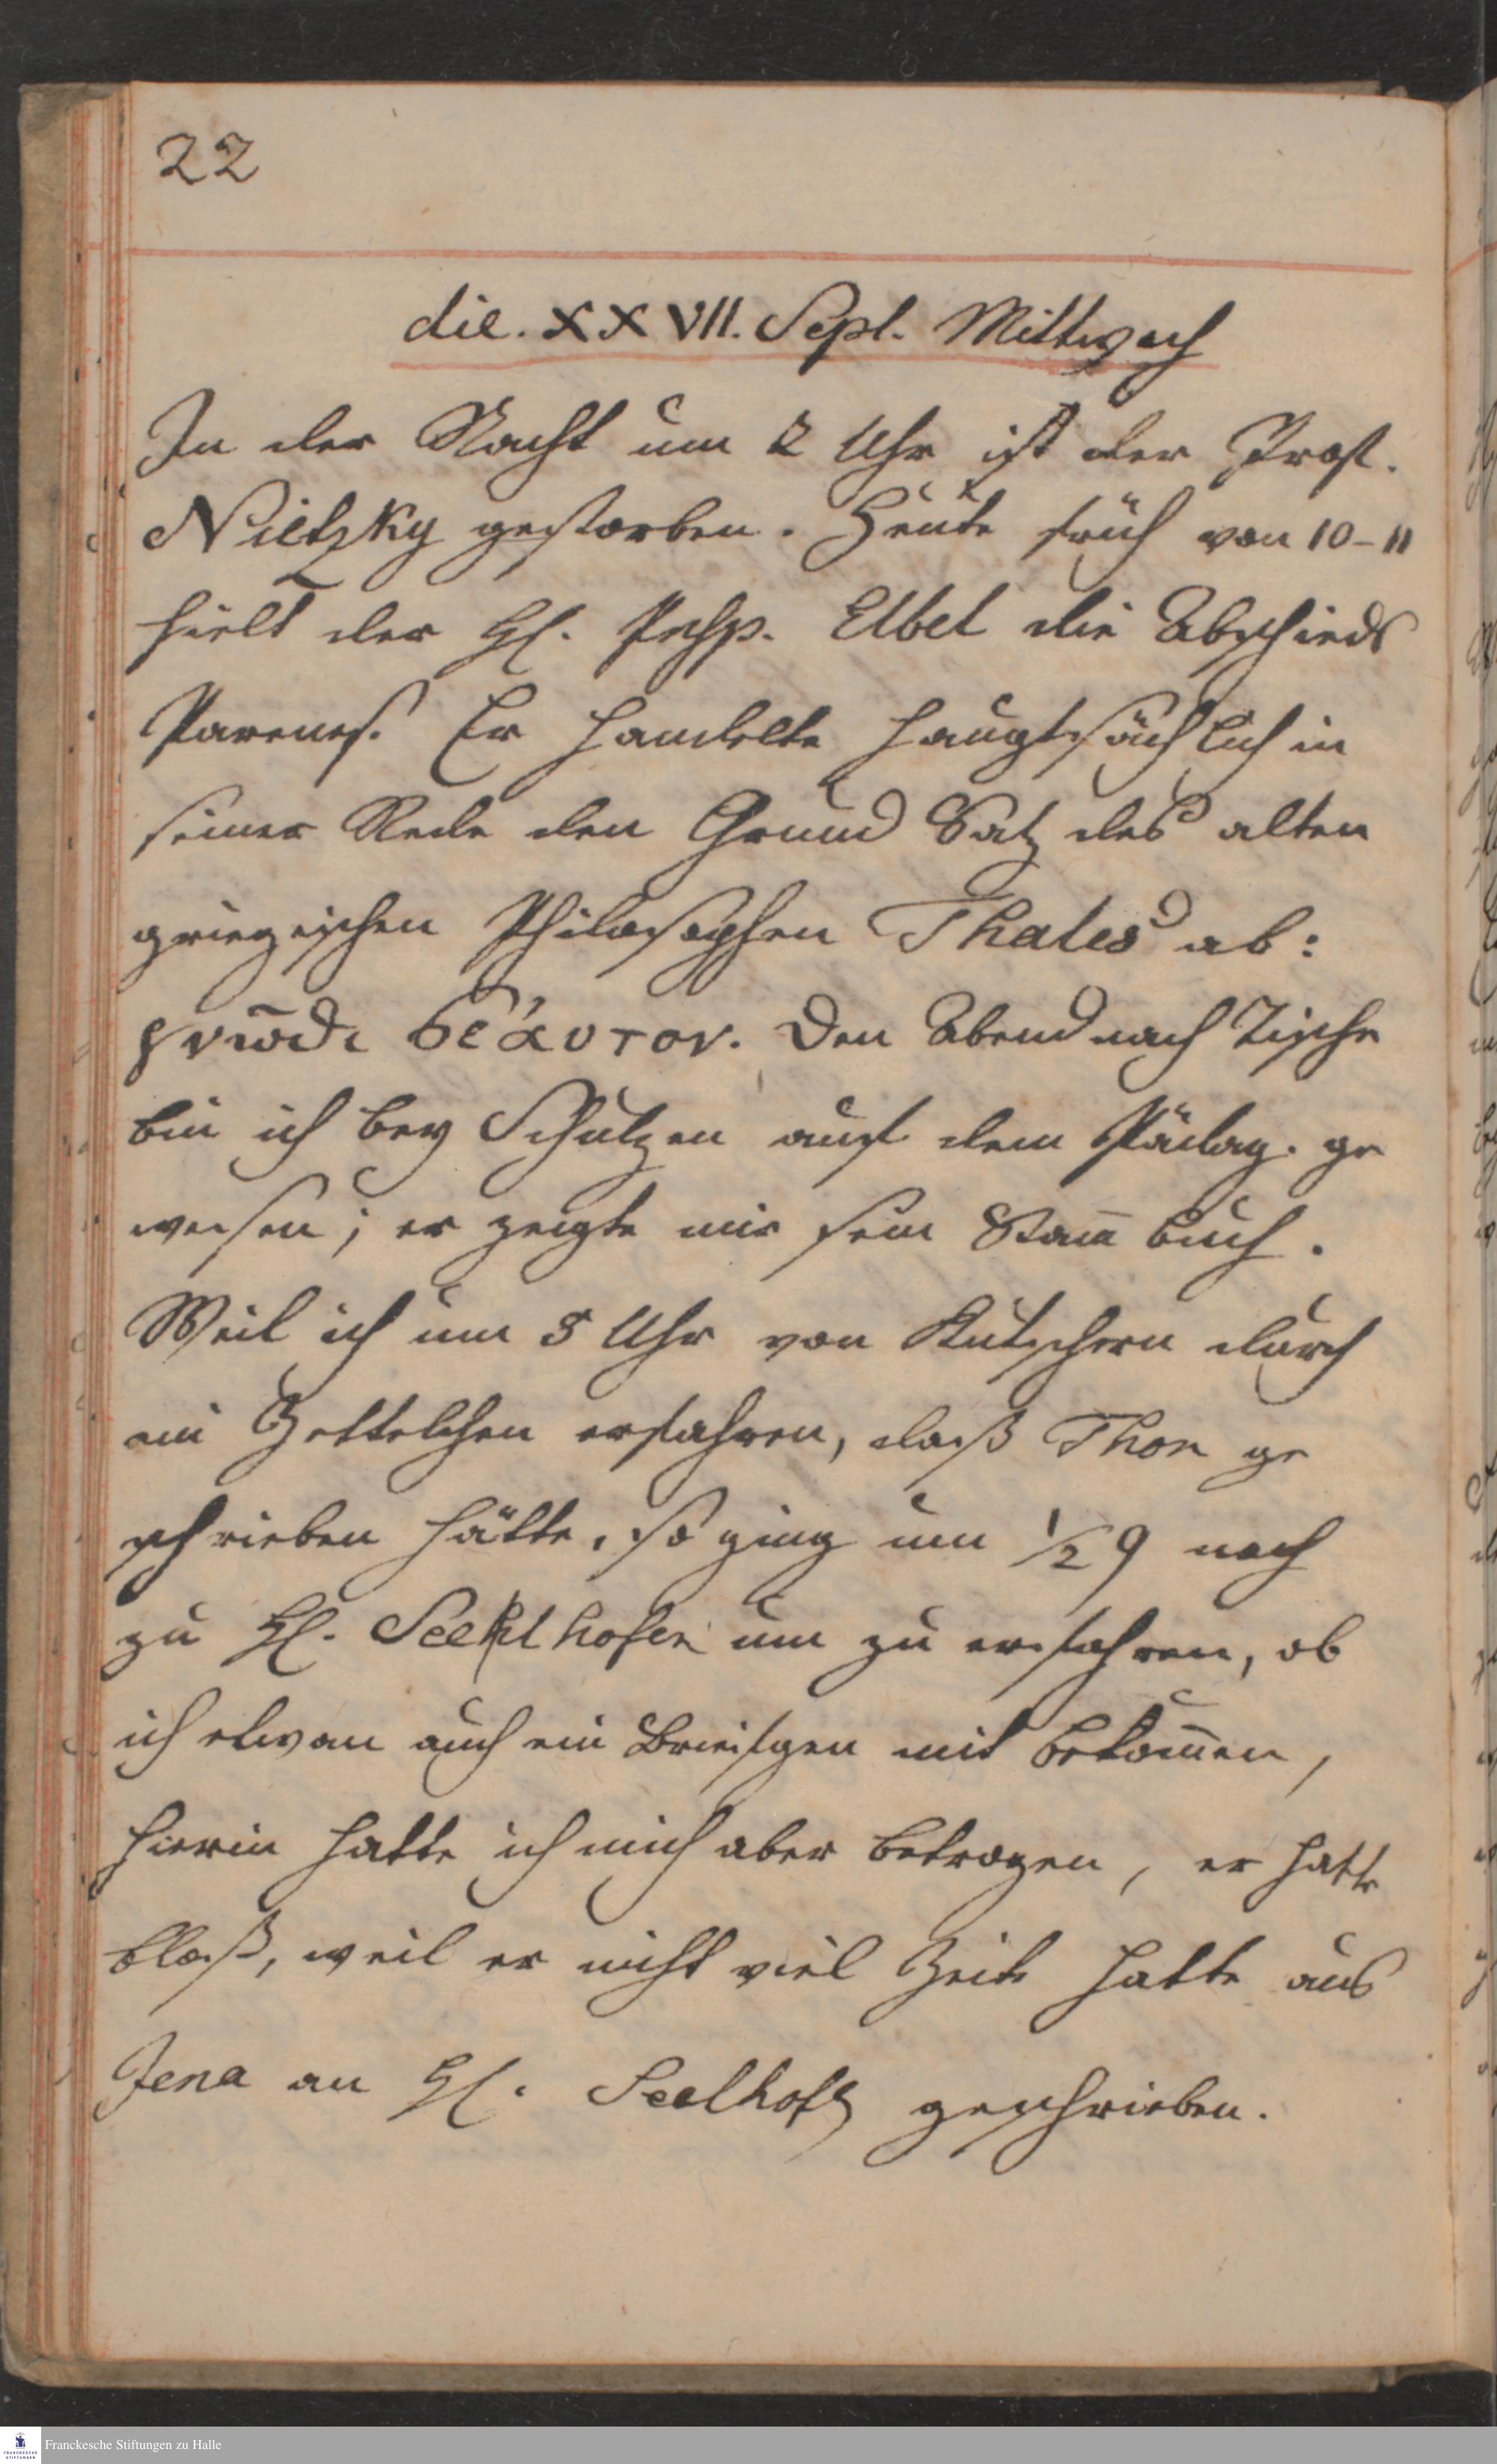 22
die. XXVII. Sept. Mittwoch
In der Nacht um 2 Uhr ist der Prof.
Nietzky gestorben. Heute früh von 10-11
hielt der H. Insp. Elbel die Abschieds
Parenes. Er handelte hauptsächlich in
seiner Rede den Grund Satz des alten
griegischen Philosophen Thales ab:
γνῶϑι σεάυτον. Den Abend nach Tische
bin ich bey Schützen auf dem Pädag. ge
wesen; er zeigte mir sein Stam̅ buch.
Weil ich um 5 Uhr von Kutschern durch
ein Zettelchen erfahren, daß Thon ge
schrieben hätte, so ging um ½ 9 noch
zu H. Seelhofen um zu erfahren, ob
ich etwan auch ein Briefgen mit bekom̅en,
hierin hatte ich mich aber betrogen, er hatte
bloß, weil er nicht viel Zeit hatte aus
Jena an H. Seelhof geschrieben.
Franckesche Stiftungen zu Halle